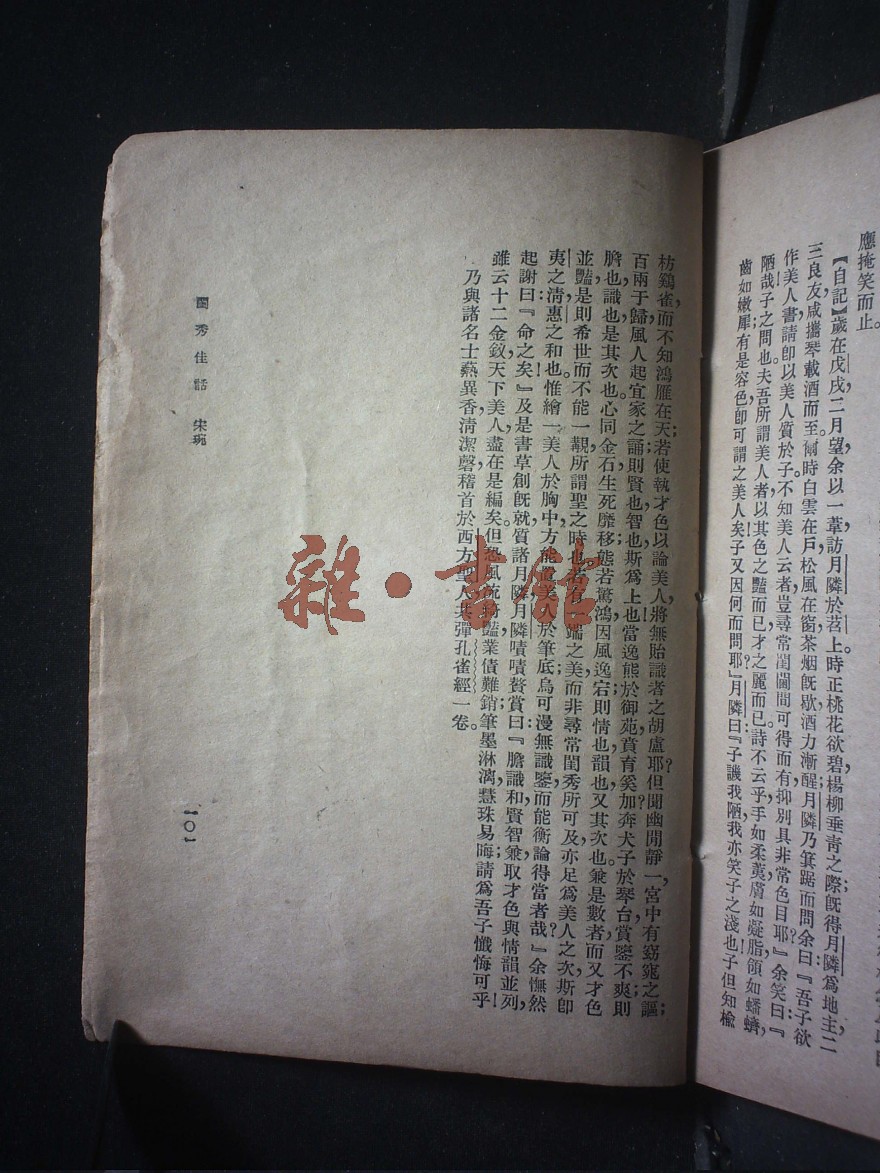 應掩笑而止。
【自記】歲在戊戌，二月望，余以一葦訪月隣於苕上。時正桃花欲碧，楊柳垂靑之際；旣得月隣爲地主，二
三良友，咸攜琴載酒而至。爾時白雲在戶，松風在窗，茶烟旣歇，酒力漸醒，月隣乃箕踞而問余曰：『吾子欲
作美人書，請卽以美人質於子。不知美人云者，豈尋常閨閫間可得而有，抑別具非常色目耶？』余笑曰：『
陋哉子之問也！夫吾所謂美人者，以其色之豔而已，才之麗而已。詩不云乎：手如柔荑，膚如凝脂，領如蝤蠐，
齒如嫩犀，有是容色，卽可謂之美人矣；子又因何而問耶？』月隣曰：『子譏我陋，我亦笑子之淺也！子但知楡
枋鷃雀，而不知鴻雁在天；若使執才色以論美人，將無貽識者之胡盧耶？但聞幽閒靜一，宮中有窈窕之謳；
百兩于歸，風人起宜家之誦，則賢也，智也，斯爲上也！當逸熊於御苑，賁育奚加？奔犬子於琴台，賞鑒不爽，則
膽也，識也，是其次也。心同金石，生死靡移，態若驚鴻，因風逸宕，則情也，韻也，又其次也。兼是數者，而又才色
並豔，是則希世而不能一覯，所謂聖之時也；若有一端之美，而非尋常閨秀所可及，亦足爲美人之次，斯卽
夷之淸，惠之和也！惟繪一美人於胸中，方能置美人於筆底，烏可漫無識鑒，而能衡論得當者哉？』余憮然
起謝曰：『命之矣。』及是書草創旣就，質諸月隣，月隣嘖嘖贅賞曰：『膽識和賢智兼取，才色與情韻並列，
雖云十二金釵，天下美人，盡在是編矣。但恐風流 豔，業債難銷；筆墨淋漓，慧珠易晦；請爲吾子懺悔可乎！
』乃與諸名士爇異香，淸潔罄，稽首於西方聖人，共彈孔雀經一卷。
閨秀佳話　宋琬
一〇一
雜·書館